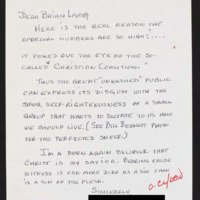 Dear Brian Lamb
Here is the real reason the
approval numbers are so high:....
it pokes out the eye of the so-
called "Christian Coalition."
Thus the great "unwashed" public
can express its disgust with the
smug self-righteousness of a small
group that wants to dictate to us how
we should live. (See Bill Bennett
for the perfected sneer.)
I'm a born again believer that
Christ is my Savior. Bearing false
witness is far more dire as a sin than
is a sin of the flesh.
Sincerely